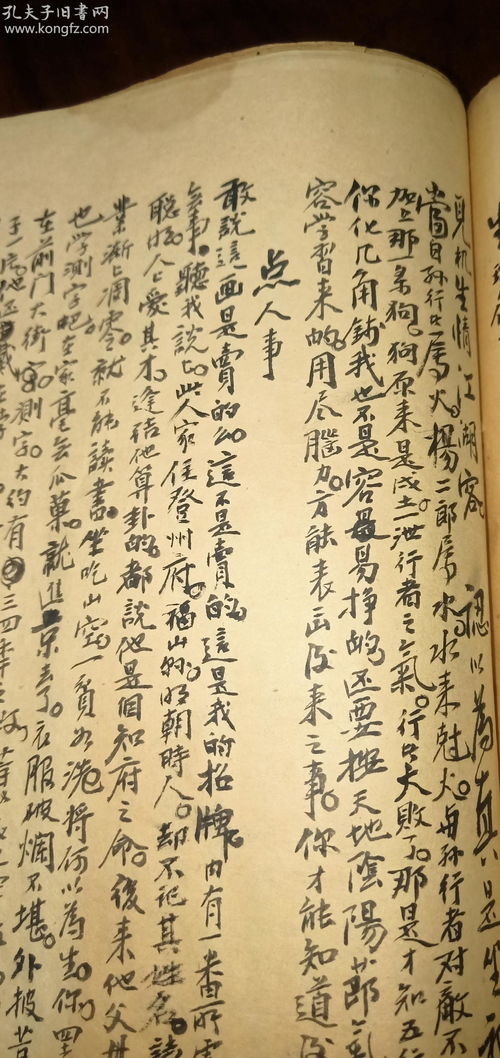 孔夫子旧书网
www.kongfz.com
見机生情江湖客 認以為真
當日孫行者属火。楊二郎属水。水来尅火。与孫行者对敵不
那一条狗。狗原来是戌土。泄行者之氣。行者大敗了。那是才知五
你化几角錢我也不是容易掙的。还要搃天地陰陽節氣
容学習来的。用尽腦力。方能表出後来之事。你才能知道后
点人事
敢說這画是賣的么。這不是賣的。這是我的招牌。内有一番所
氣事。聽我說此人家住登州府。福山的。明朝時人。却不記其姓名。讀
聪格。人人愛其才。逢結他算卦的。都說他是個知府之命。後来他父母
業漸漸凋零。就不能讀書。坐吃山空。一貧如洗。将何以為生。你四
也学測字吧。在家毫無瓜葉。就進京去了。衣服破爛不堪。外披
在前门大街測字。大約有三四年